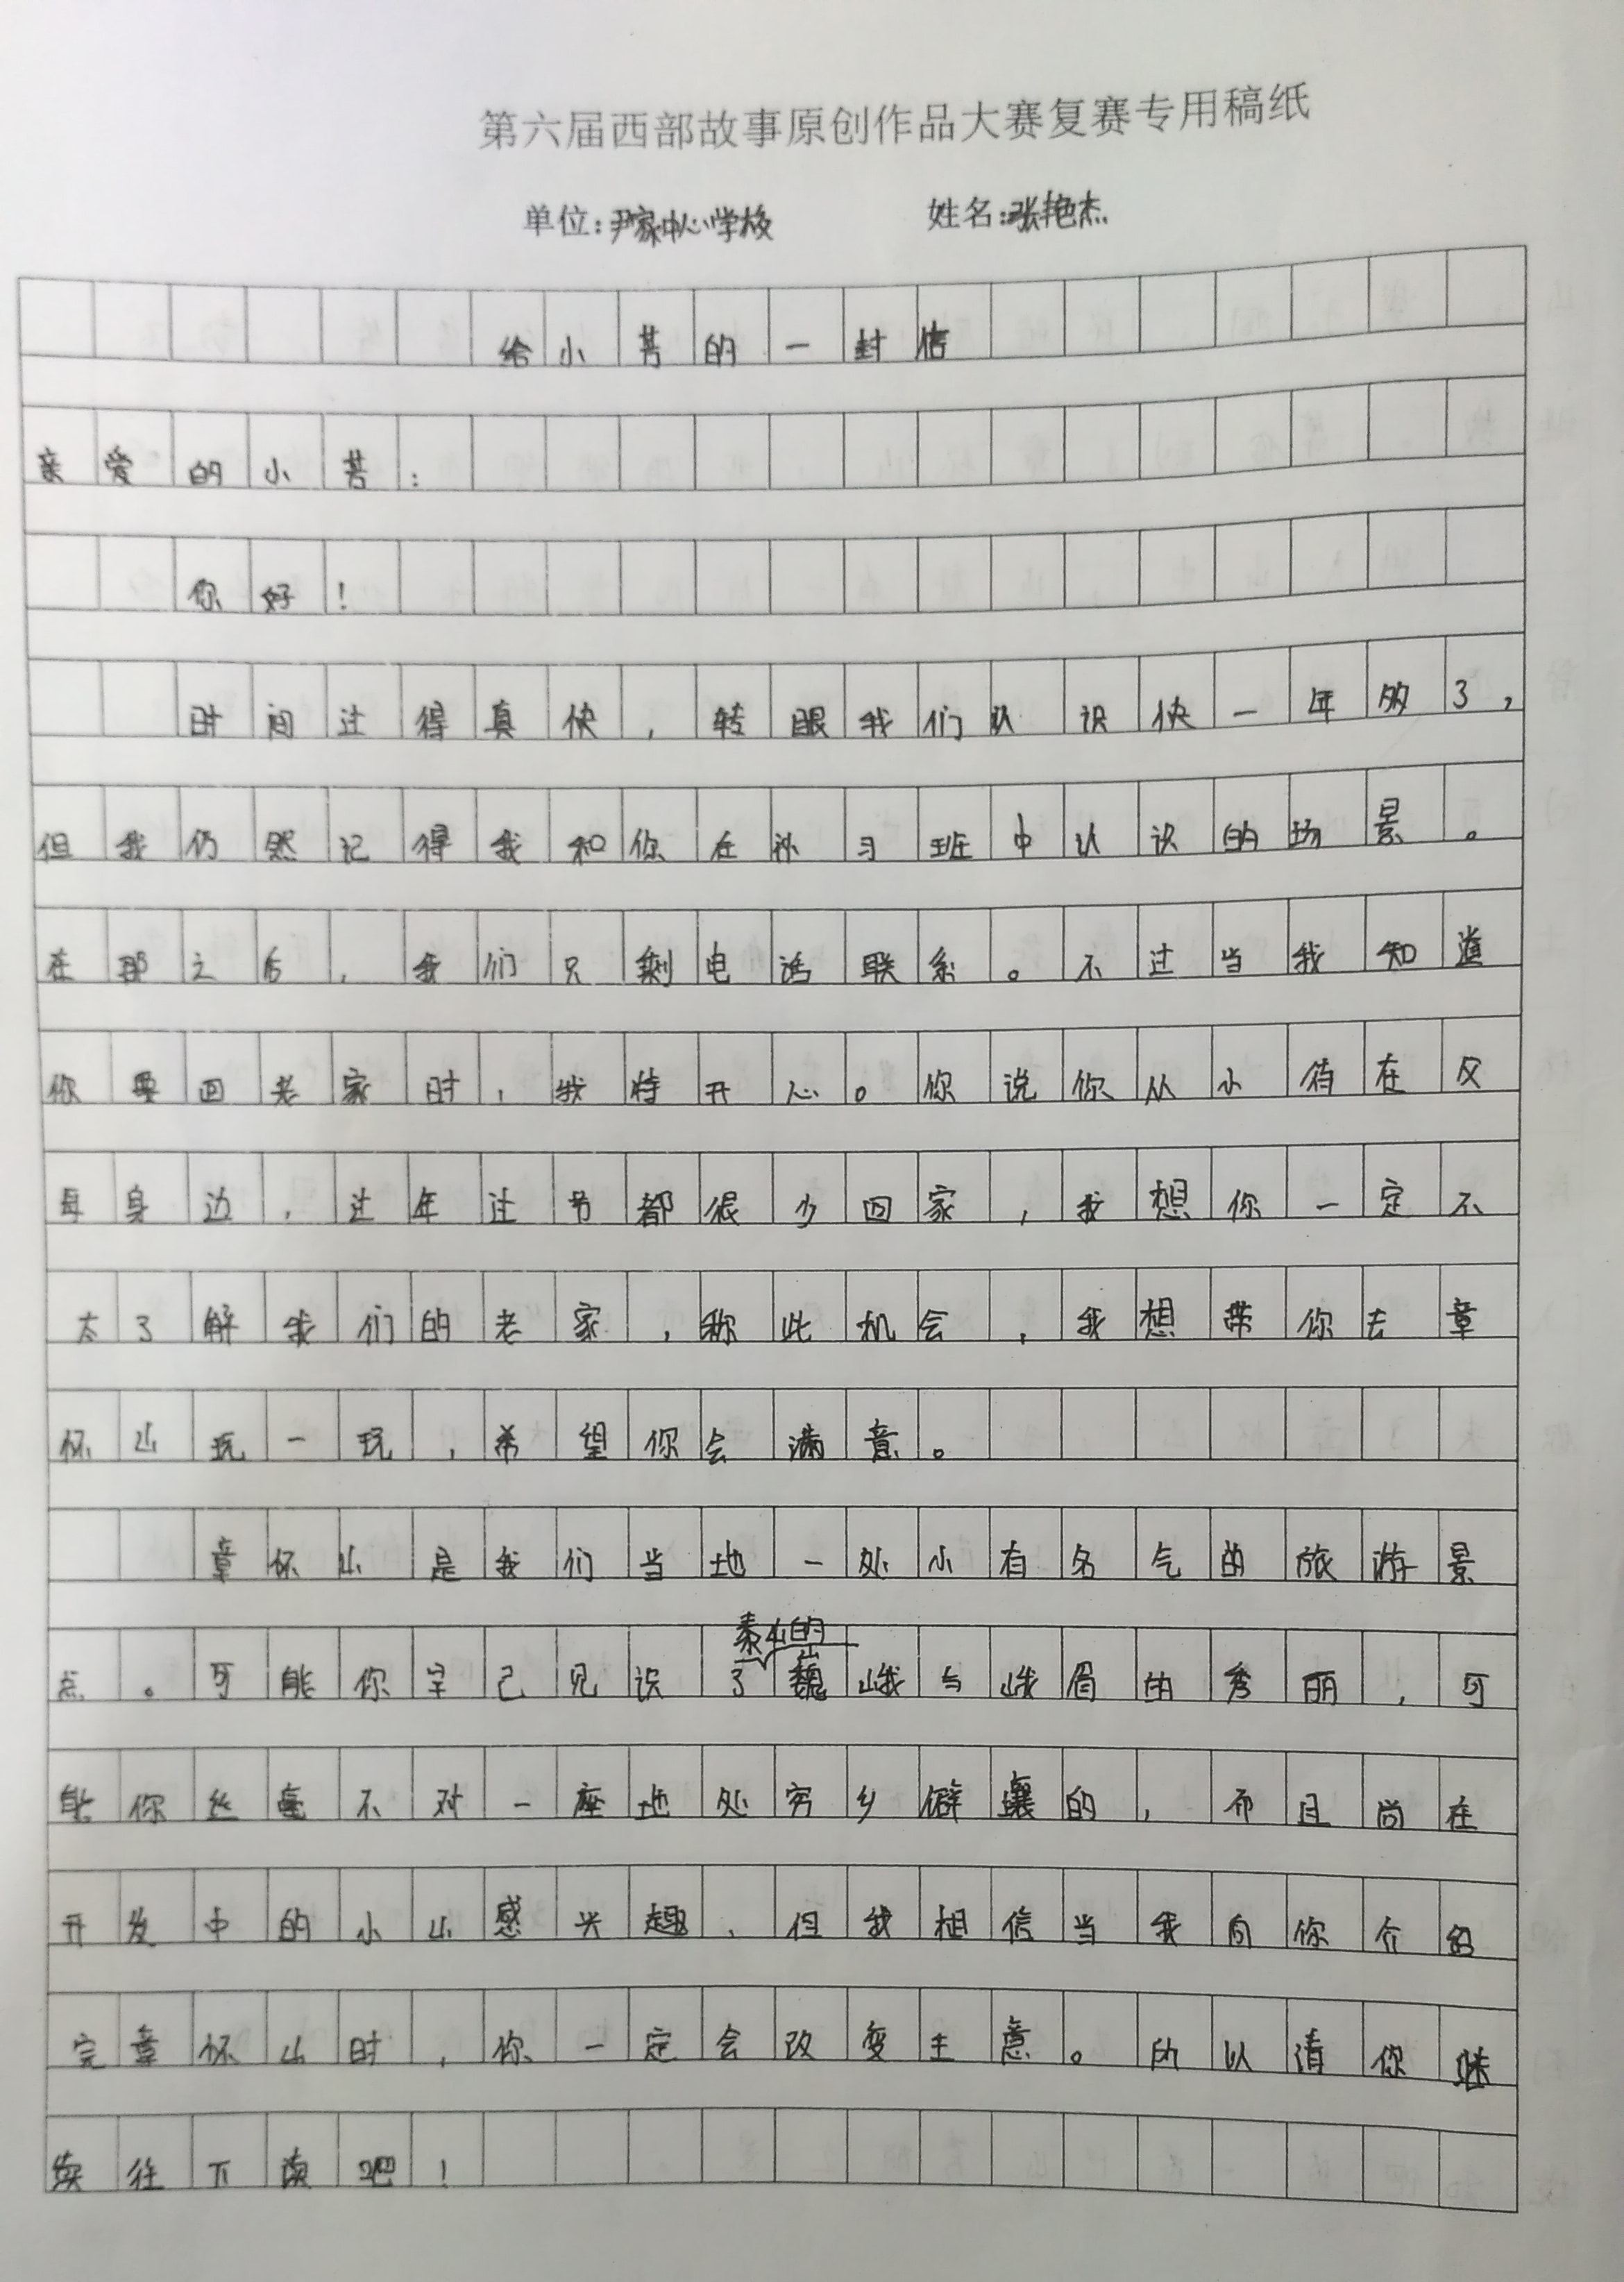 第六届西部故事原创作品大赛复赛专用稿纸
单位:尹家中心学校 姓名:张艳杰
给小芳的一封信
亲爱的小芳:
你好!
时间过得真快,转眼我们认识快一年多了,
但我仍然记得我和你在补习班中认识的场景。
在那之后,我们只剩电话联系。不过当我知道
你要回老家时,我特开心。你说你从小待在父
母身边,过年过节都很少回家,我想你一定不
太了解我们的老家,称此机会,我想带你去章
怀山玩一玩,希望你会满意。
章怀山是我们当地一处小有名气的旅游景
点。可能你早已见识了泰山的巍峨与峨眉的秀丽,可
能你丝毫不对一座地处穷乡僻壤的,而且尚在
开发中的小山感兴趣,但我相信当我向你介绍
完章怀山时,你一定会改变主意。所以请你继
续往下读吧!